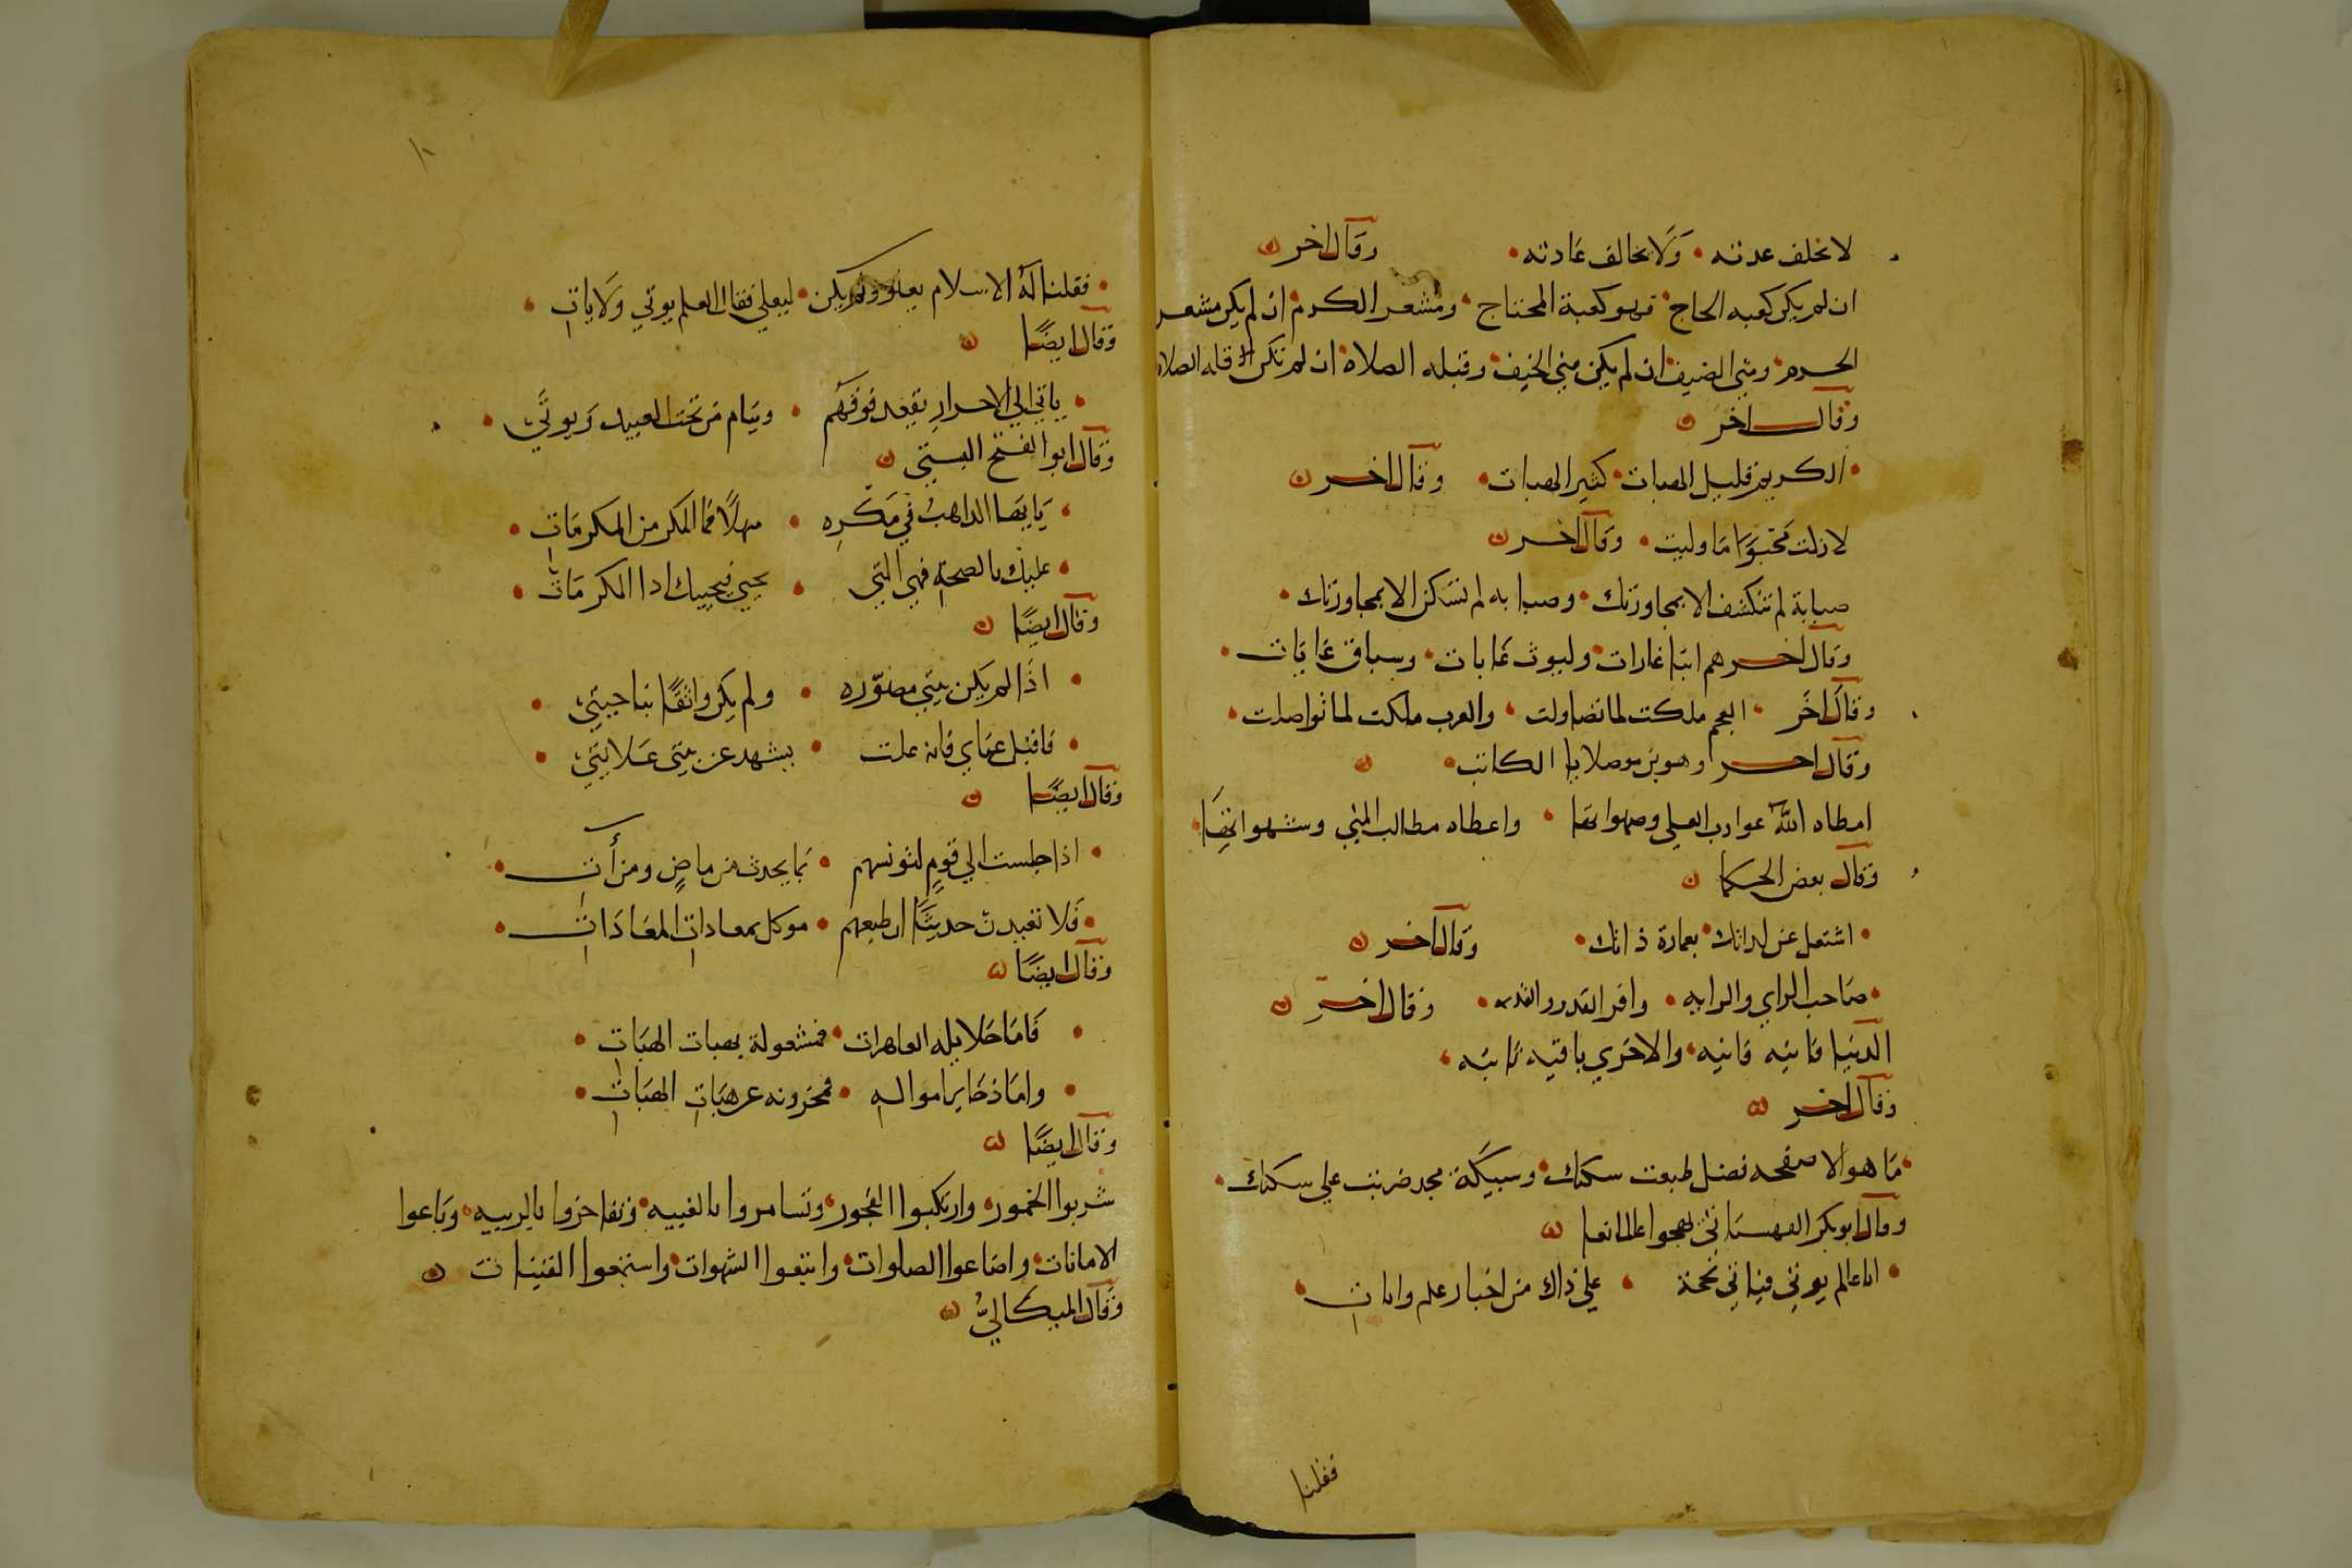 لا تخلف عدته • وَلا تخالف عَادته • وقال اخر
ان لم يكن كعبه الحاج • فهو كعبة المحتاج • ومشعر الكرم • ان لم يكن مشعر
الحرم • ومنى الضيف • ان لم يكن منى الخيف • وقبله الصلاه • ان لم تكن قبله الصلاه
وقال اخر
• الكريم قليل الهبات • كثير الهبات • وقال اخر
لا زلت محبوا ما وليت • وقال اخر
صبابة لم تنكشف الا بمجاورتك • وصبابه لم تسكن الا بمجاورتك •
وقال اخر هم ابنا غارات • وليوث غابات • وسباق غايات •
وقال اخر • العجم ملكت لما تضاولت • والعرب ملكت لما تواصلت •
وقال اخر وهو بن موصلايا الكاتب •
امطاه الله عوارب العلى وصهواتها • واعطاه مطالب المنى وشهواتها •
وقال بعض الحكما
• اشتغل عن لداتك • بعمارة ذاتك • وقال اخر
• صَاحب الراي والرايه • وافر القدر والقدره • وقال اخر
الدنيا فانيه فانيه • والاخري باقيه ثابته •
وقال اخر
• مَا هو الا صفحه فضل طبعت سكتك • وسبيكة مجد ضربت على سكتك •
وقال ابو بكر القهستاني يهجوا عالما نعا
• اتاعالم يوتى فياتى نحمة • علي ذاك من اخبار علم وايات •
فقلنا
• فقلنا له الاسلام يعلو ولم يكن • ليعلي فقال العلم يوتي وَلا يات •
وقال ايضًا
• ياتي الي الاحرار يقعد فوقهم • وينام من تحت العبيد وَيوتَى •
وقال ابو الفتح البستي
• يَا ايها الذاهبُ في مَكره • مهلاً فما المكر من المكرمَات •
• عليك بالصحة فهي التي • يحيي فيحييك اذا المكر مَات •
وقال ايضًا
• اذَا لم يكن بيتي مصوّره • ولم يكن واثقًا بناحيتي •
• فاقبل عماي فانه علت • بيشهد عن بيتى عَلانيتي •
وقال ايضًا
• اذا جلست الي قوم لتونسهم • بما يحدث من ماضٍ ومن آت •
• فَلا تعيدن حديثًا ان طبعهم • موكل بمعادات المعَادَات •
وقال ايضًا
• فَامَا حَلايله العاهرات • فمشغولة بهبات الهبَات •
• وامَا ذخَاير امواله • فمخزونه عن هبَات الهبَات •
وقال ايضًا
شربوا الخمور • وارتكبوا الفجور • وتسامروا بالغيبه • وتفاخروا بالريبه • وَباعوا
الامانات • واضاعوا الصلوات • واتبعوا الشهوات • واستمعوا القينات
وقال الميكاليُّ